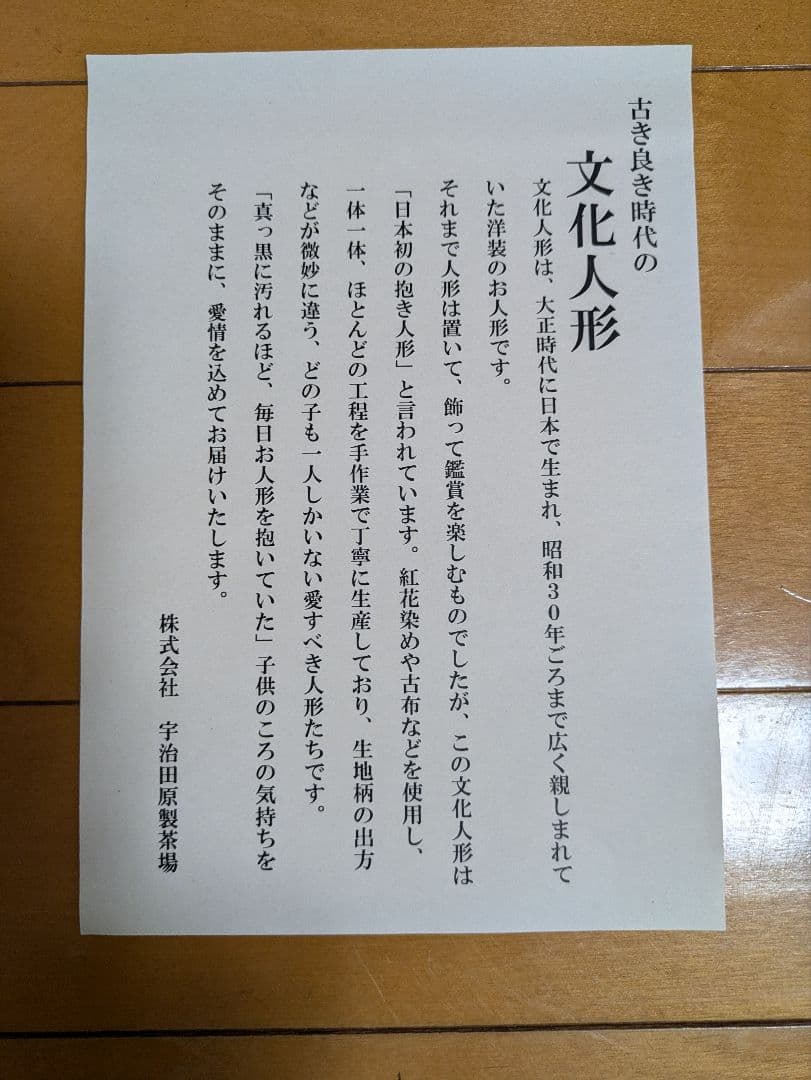 古き良き時代の
文化人形
文化人形は、大正時代に日本で生まれ、昭和30年ごろまで広く親しまれて
いた洋装のお人形です。
それまで人形は置いて、飾って鑑賞を楽しむものでしたが、この文化人形は
「日本初の抱き人形」と言われています。紅花染めや古布などを使用し、
一体一体、ほとんどの工程を手作業で丁寧に生産しており、生地柄の出方
などが微妙に違う、どの子も一人しかいない愛すべき人形たちです。
「真っ黒に汚れるほど、毎日お人形を抱いていた」子供のころの気持ちを
そのままに、愛情を込めてお届けいたします。
株式会社　宇治田原製茶場